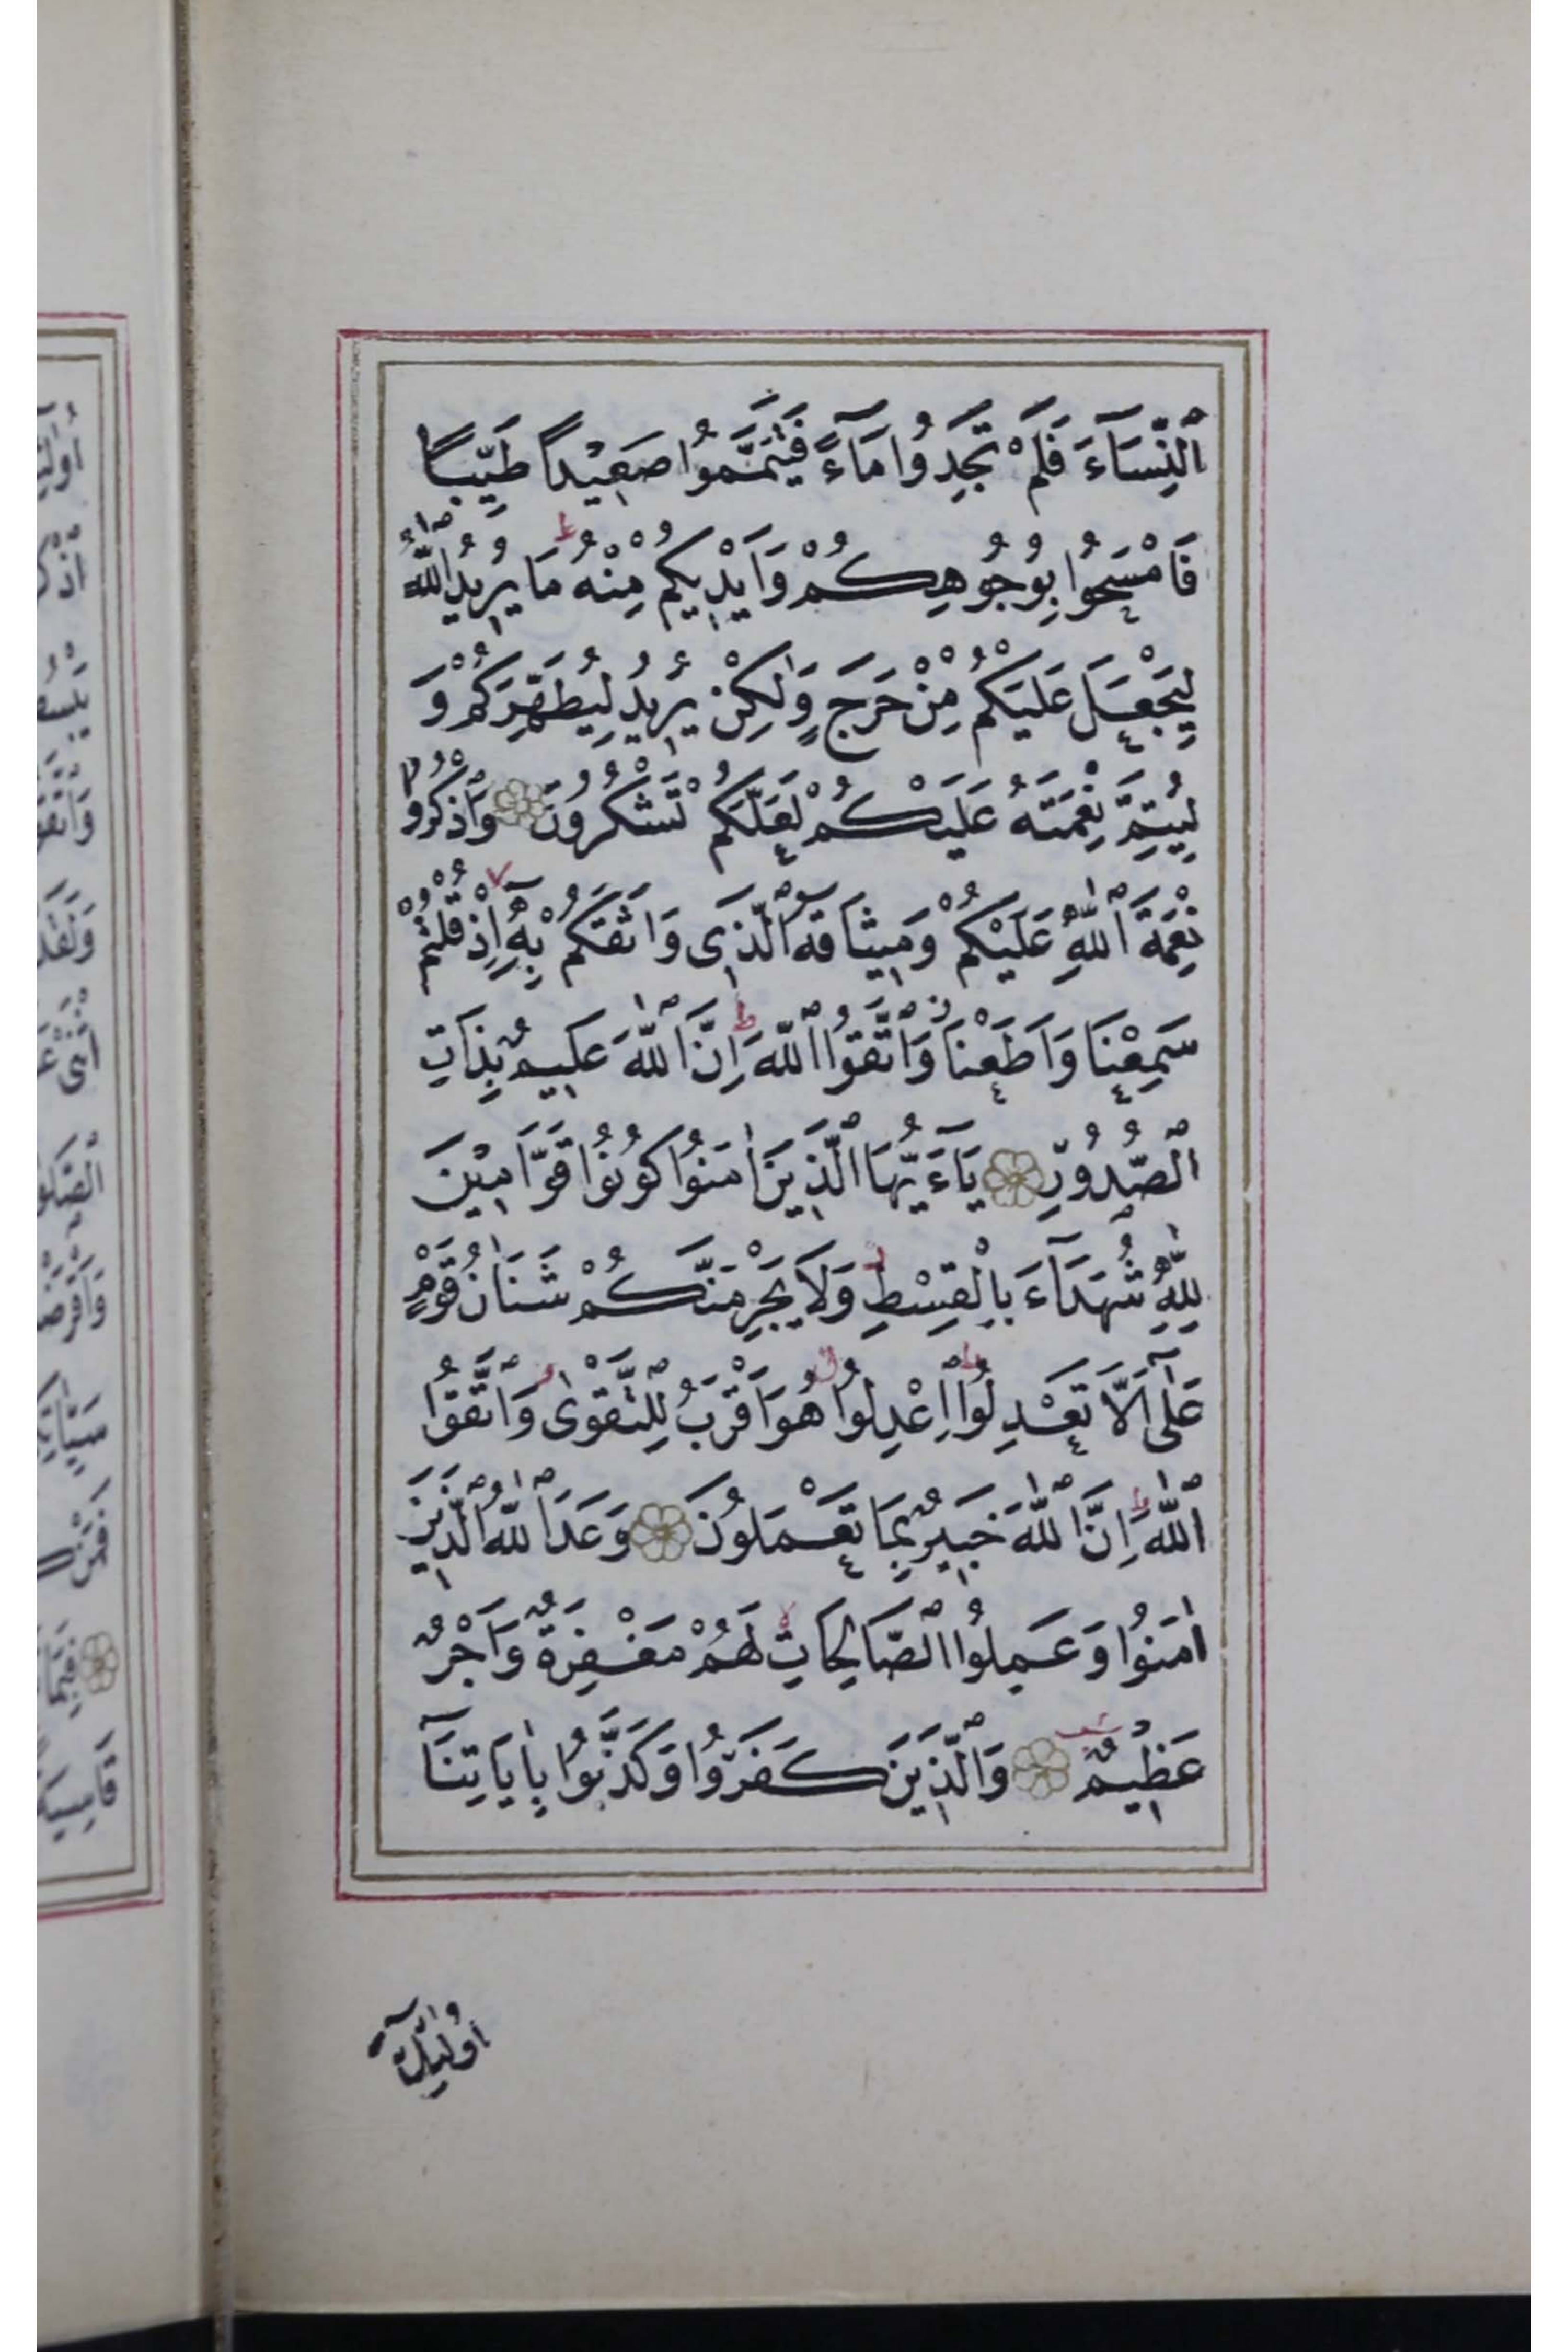 اَلنِّسَآءَ فَلَمْ تَجِدُوا مَآءً فَتَيَمَّمُوا صَعِيْداً طَيِّباً
فَامْسَحُوا بِوُجُوهِكُمْ وَاَيْدِيكُمْ مِنْهُ مَا يُرِيدُ اللّٰهُ
لِيَجْعَلَ عَلَيْكُمْ مِنْ حَرَجٍ وَلٰكِنْ يُرِيدُ لِيُطَهِّرَكُمْ وَ
لِيُتِمَّ نِعْمَتَهُ عَلَيْكُمْ لَعَلَّكُمْ تَشْكُرُونَ وَاذْكُرُوا
نِعْمَةَ اللّٰهِ عَلَيْكُمْ وَمِيثَاقَهُ الَّذِى وَاثَقَكُمْ بِهِٓ اِذْ قُلْتُمْ
سَمِعْنَا وَاَطَعْنَا وَاتَّقُوا اللّٰهَ اِنَّ اللّٰهَ عَلِيمٌ بِذَاتِ
الصُّدُورِ يَآءَيُّهَا الَّذِينَ اٰمَنُوا كُونُوا قَوَّامِينَ
لِلّٰهِ شُهَدَآءَ بِالْقِسْطِ وَلَا يَجْرِمَنَّكُمْ شَنَاٰنُ قَوْمٍ
عَلٰٓى اَلَّا تَعْدِلُوا اِعْدِلُوا هُوَ اَقْرَبُ لِلتَّقْوٰى وَاتَّقُوا
اللّٰهَ اِنَّ اللّٰهَ خَبِيرٌ بِمَا تَعْمَلُونَ وَعَدَ اللّٰهُ الَّذِينَ
اٰمَنُوا وَعَمِلُوا الصَّالِحَاتِ لَهُمْ مَغْفِرَةٌ وَاَجْرٌ
عَظِيمٌ وَالَّذِينَ كَفَرُوا وَكَذَّبُوا بِاٰيَاتِنَآ
اُولٰٓئِكَ